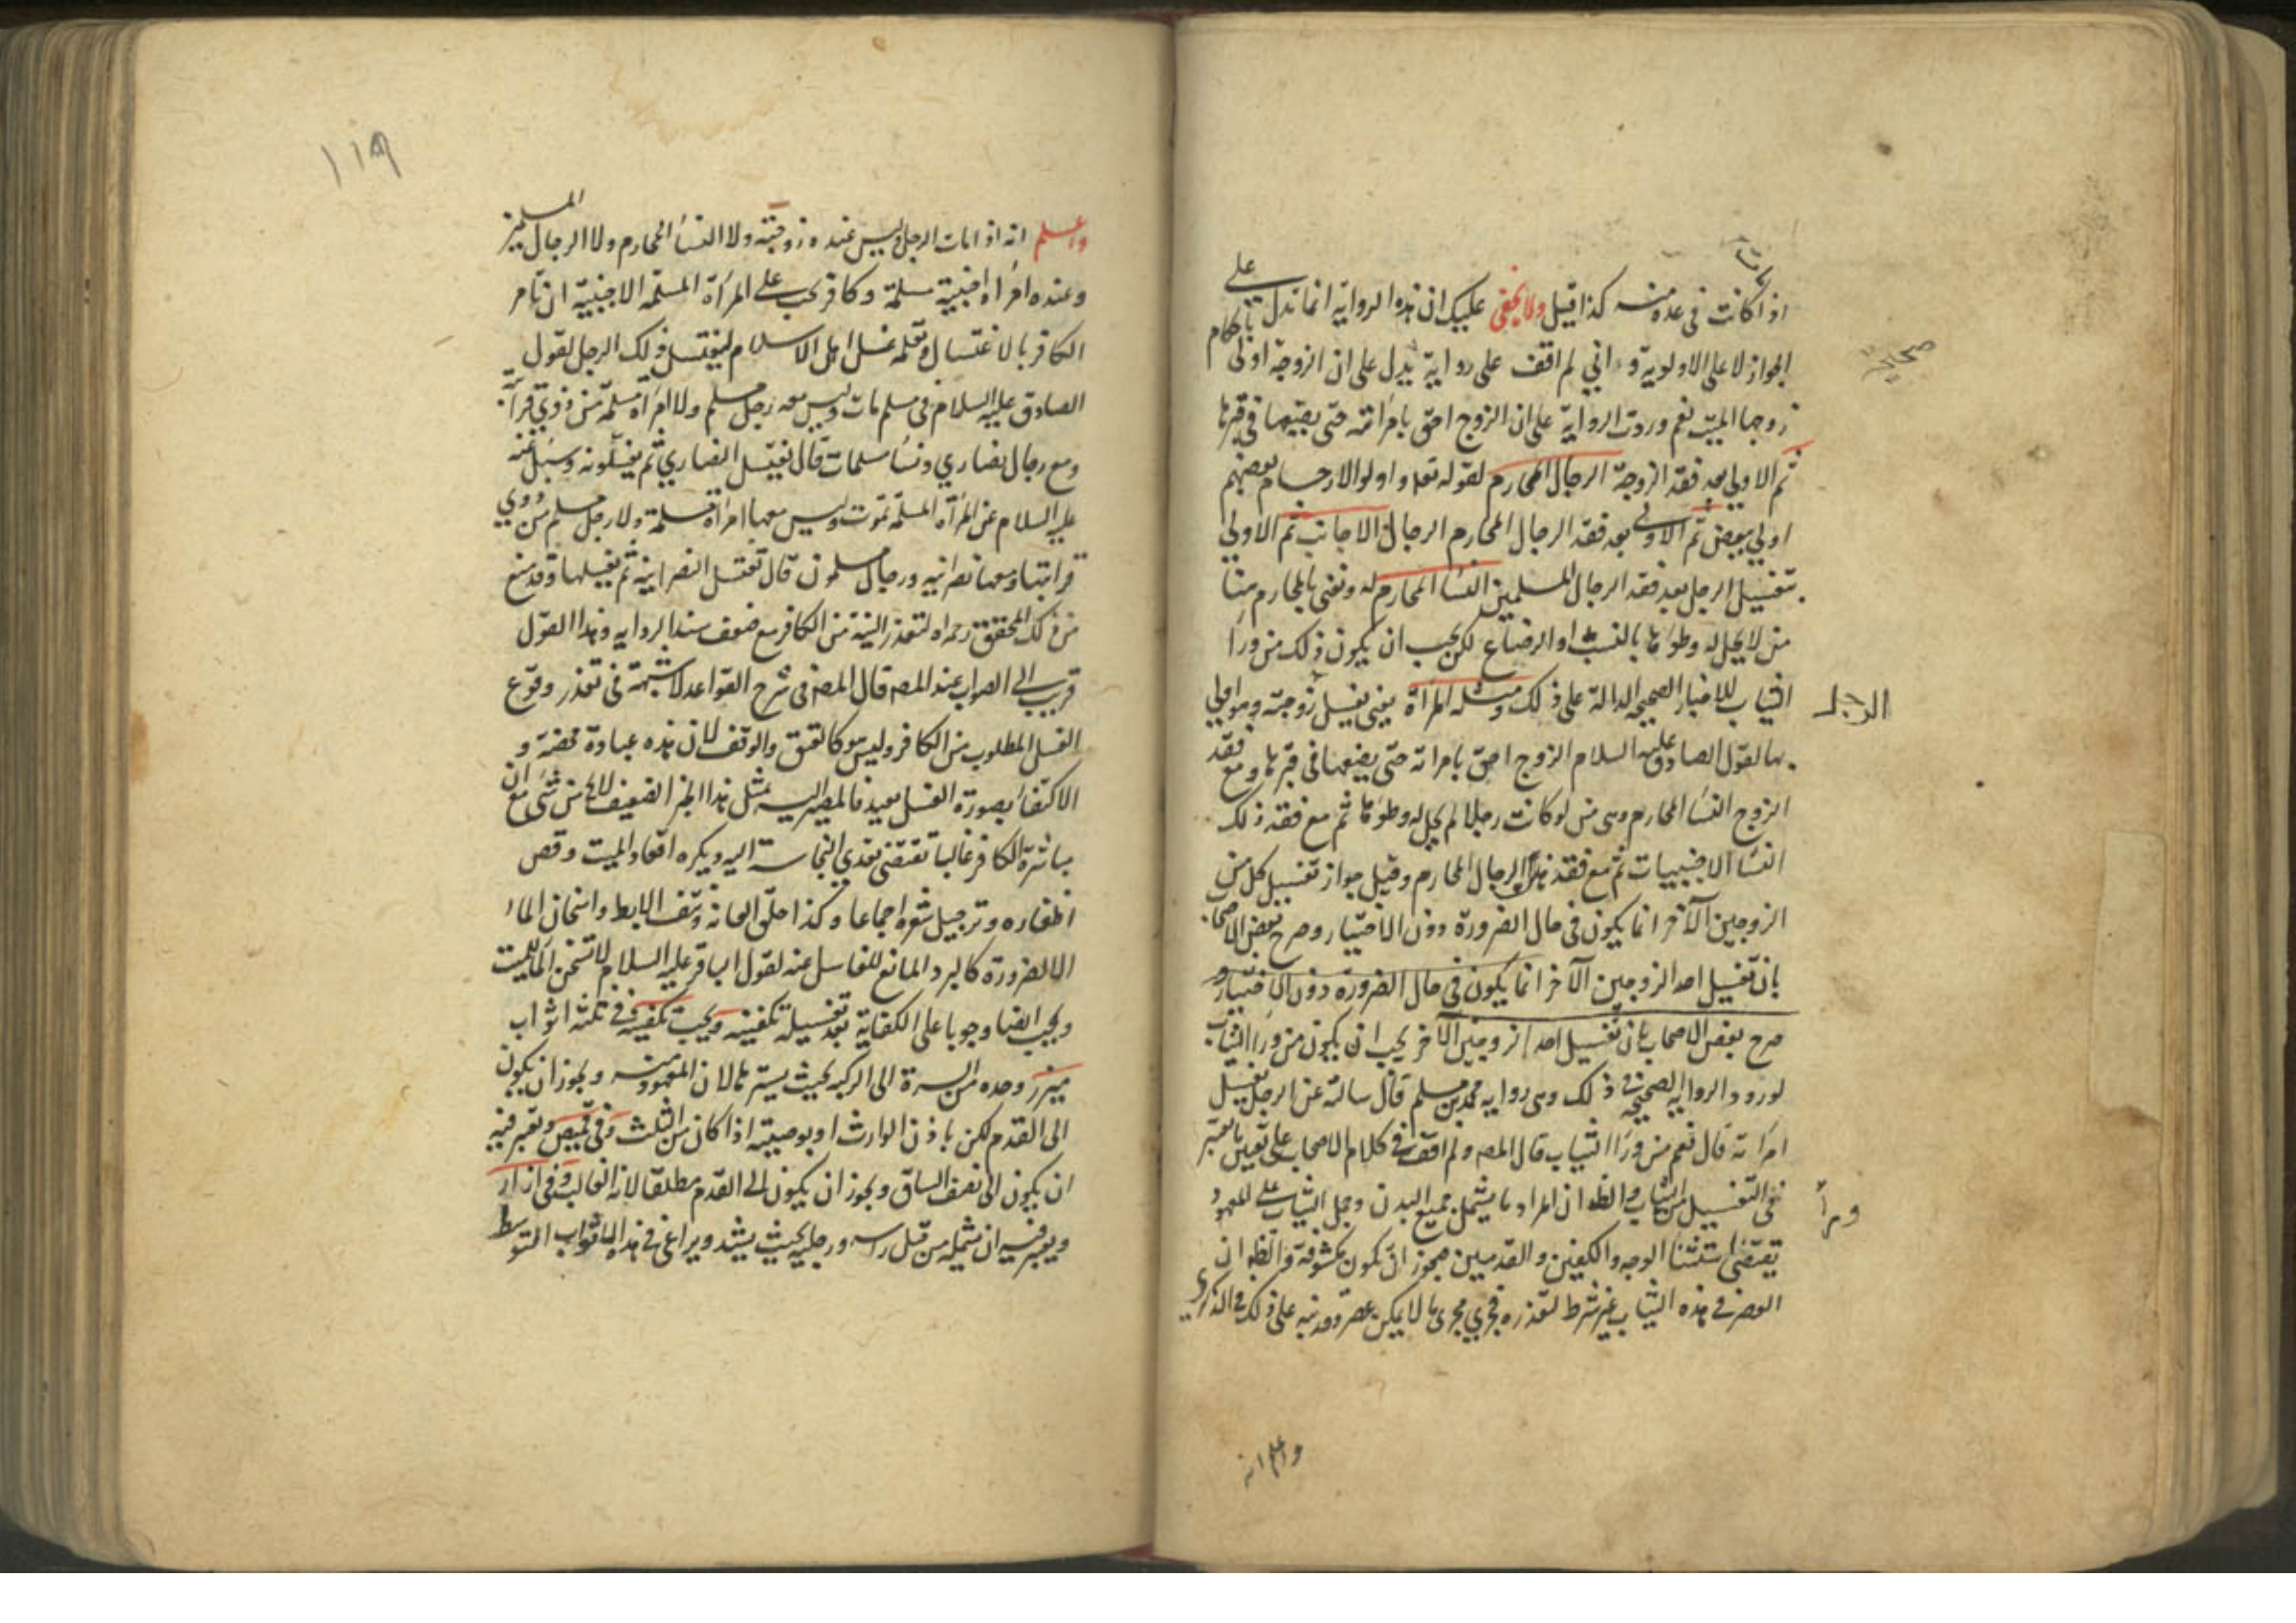 اذا كانت فى عدة منه كذا قيل ولا يخفى عليك ان هذه الرواية انما تدل على
الجواز لا على الاولوية و انى لم اقف على رواية تدل على ان الزوجة اولى باحكام
زوجها الميت نعم وردت الرواية على ان الزوج احق بامراته حتى يضعها فى قبرها
ثم الاولى بعد فقد الزوجة الرجال المحارم لقوله تعه واولوا الارحام بعضهم
اولى ببعض ثم الاولى بعد فقد الرجال المحارم الرجال الاجانب ثم الاولى
بتغسيل الرجل بعد فقد الرجال المسلمين النساء المحارم له ونعنى بالمحارم هنا
من لا يحل له وطؤها بالنسب او الرضاع لكن يجب ان يكون ذلك من وراء
الثياب للاخبار الصحيحة الدالة على ذلك ومثله المرأة يعنى يغسل زوجته وهو اولى
بها لقول الصادق عليه السلام الزوج احق بامراته حتى يضعها فى قبرها ومع فقد
الزوج النساء المحارم وهى من لو كانت رجلا لم يحل له وطؤها ثم مع فقد ذلك
النساء الاجنبيات ثم مع فقد هذا الرجال المحارم وقيل جواز تغسيل كل من
الزوجين الآخر انما يكون فى حال الضرورة دون الاختيار وصرح بعض الاصحاب
بان تغسيل احد الزوجين الآخر انما يكون فى حال الضرورة دون الاختيار و
صرح بعض الاصحاب بان تغسيل احد الزوجين الآخر يجب ان يكون من وراء الثياب
لورود الرواية الصحيحة فى ذلك وهى رواية محمد بن مسلم قال سالته عن الرجل يغسل
امراته قال نعم من وراء الثياب قال المصه ولم اقف فى كلام الاصحاب على تعيين ما يعتبر
فى التغسيل من الثياب والظ ان المراد ما يشمل جميع البدن وحمل الثياب على المعهود
يقتضى استثناء الوجه والكفين والقدمين فيجوز ان تكون مكشوفة والظ ان
العصر فى هذه الثياب غير شرط لتعذره فجرى مجرى ما لا يمكن عصره وقد نبه على ذلك فى الذكرى
صحيح
الرجل
وراء
واعلم انه
١١٩
واعلم انه اذا مات الرجل وليس عنده زوجته ولا النساء المحارم ولا الرجال المسلمين
وعنده امراة اجنبية مسلمة وكافر يجب على المرأة المسلمة الاجنبية ان تامر
الكافر بالاغتسال وتعلمه غسل اهل الاسلام ليغتسل ذلك الرجل لقول
الصادق عليه السلام فى مسلم مات وليس معه رجل مسلم ولا امراة مسلمة من ذوى قرابته
ومعه رجال نصارى ونساء مسلمات قال يغتسل النصارى ثم يغسلونه وسئل عنه
عليه السلام عن المرأة المسلمة تموت وليس معها امراة مسلمة ولا رجل مسلم من ذوى
قرابتها ومعها نصرانيه ورجال مسلمون قال تغتسل النصرانية ثم تغسلها وقد منع
من ذلك المحقق رحمه اه لتعذر النية من الكافر مع ضعف سند الروايه وهذا القول
قريب الى الصواب عند المصه قال المصه فى شرح القواعد لا شبهة فى تعذر وقوع
الغسل المطلوب من الكافر وليس هو كالعتق والوقف لان هذه عبادة محضة و
الاكتفاء بصورة الغسل بعيد فالمصير اليه بمثل هذا الخبر الضعيف لا يخ من شئ مع ان
مباشرة الكافر غالبا تقتضى تعدى النجاسة اليه ويكره اقعاد الميت وقص
اظفاره وترجيل شعره اجماعا وكذا حلق العانة ونتف الابط واسخان الماء
الا لضرورة كالبرد المانع للغاسل عنه لقول الباقر عليه السلام لا تسخن الماء للميت
ويجب ايضا وجوبا على الكفاية بعد تغسيله تكفينه ويجب تكفينه فى ثلثه اثواب
ميزر وحده من السرة الى الركبه بحيث يسترها لان المعهود منه ويجوز ان يكون
الى القدم لكن باذن الوارث او بوصيته اذا كان من الثلث وفى قميص ويعتبر فيه
ان يكون الى نصف الساق ويجوز ان يكون الى القدم مطلقا لانه الغالب وفى ازار
ويعتبر فيه ان يشمله من قبل راسه ورجليه بحيث يشد ويراعى فى هذه الاثواب التوسط